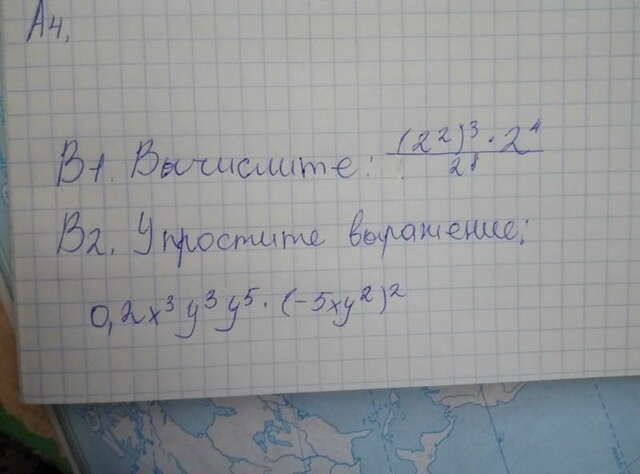 А4.
В1. Вычислите: (2²)³ · 2⁴ / 2⁸
В2. Упростите выражение:
0,2x³y³y⁵ · (-5xy²)²